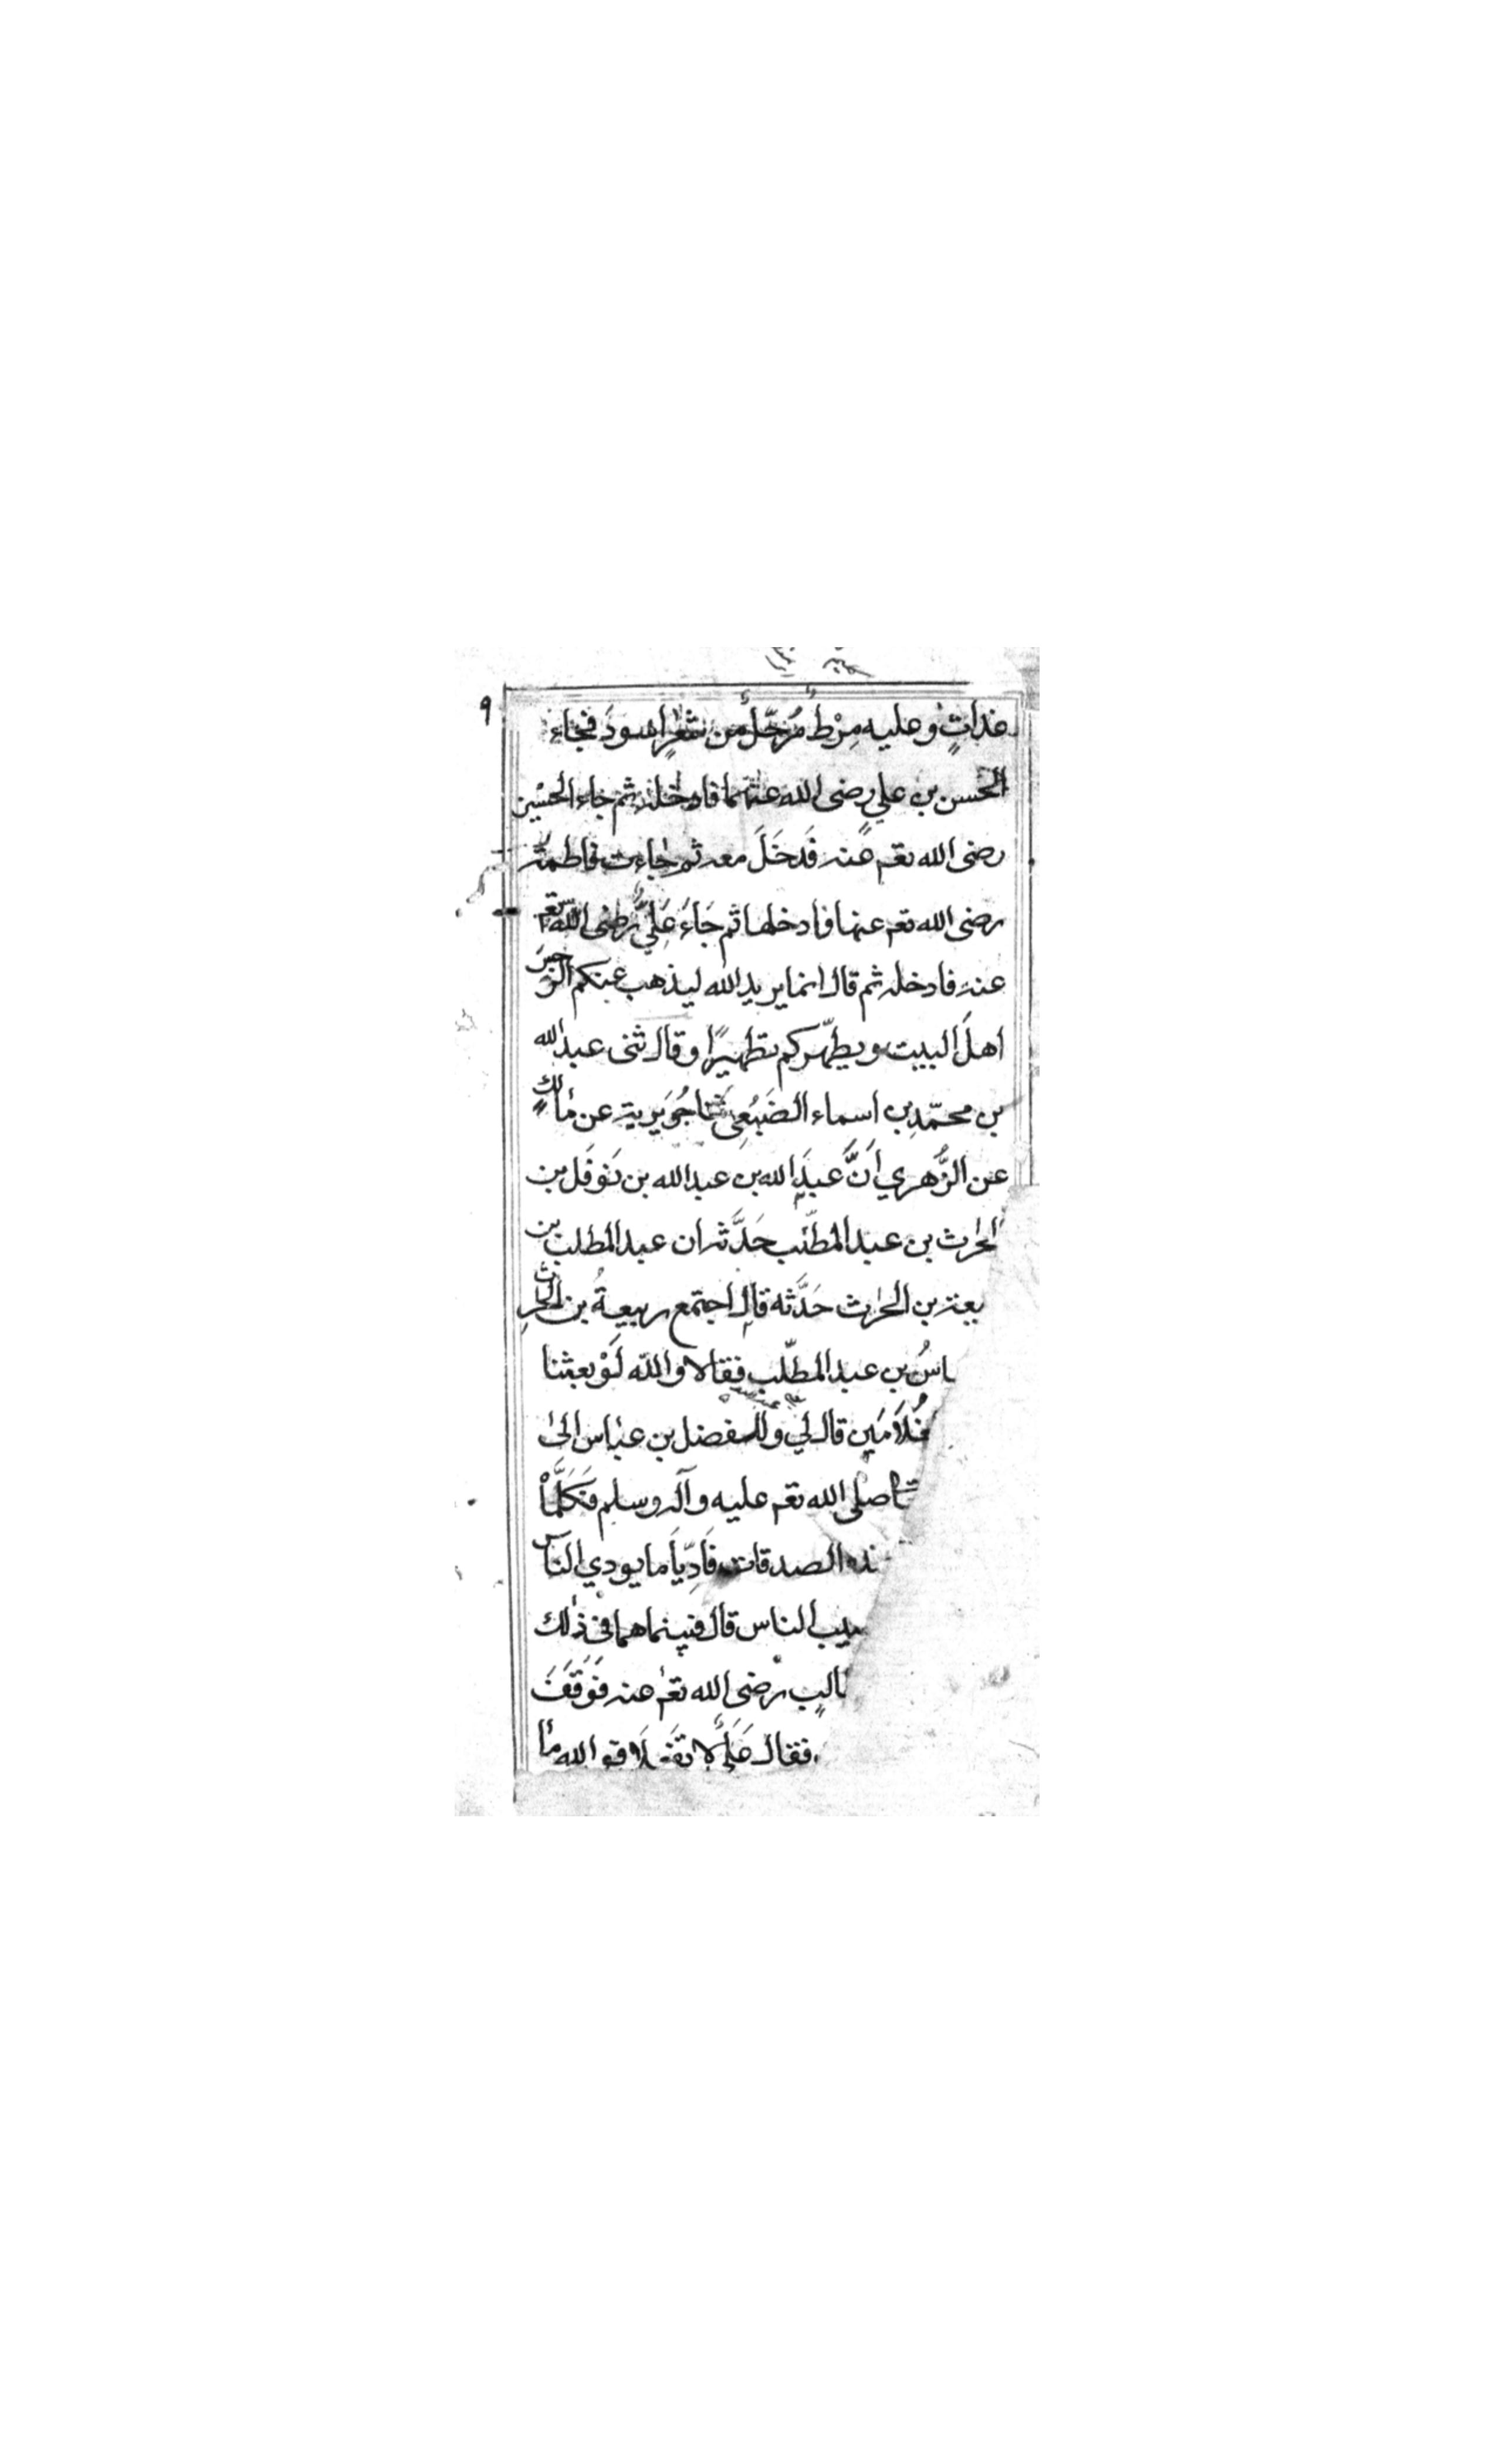 ٩
غداتٍ وعليه مِرْطٌ مُرَحَّلٌ من شعرٍ اسودَ فجاء
الحسن بن علي رضى الله عنهما فادخله ثم جاء الحسْين
رضى الله تعم عنه فَدخَلَ معه ثم جاءت فاطمة
رضى الله تعم عنها فادخلها ثم جَاءَ عَلِيٌّ رضى اللّه تعم
عنه فادخله ثم قال انما يريد الله ليذهب عنكم الرجس
اهلَ البيت ويطهّركم تطهيرًا وقال ثنى عبد الله
بن محمّدِ بن اسماء الضَبُعِى ثنا جُوَيرية عن مالكٍ
عن الزُّهري اَنَّ عبدَ الله بن عبد الله بن نَوفَل بن
الحرٰث بن عبد المطّلب حَدَّثه ان عبد المطلب بن
بيعة بن الحرٰث حَدَّثه قال اجتمع ربيعةُ بن الحرِث
باسُ بن عبد المطّلب فقالا واللّه لَوْ بعثنا
غُلاَمَين قال لي وللفضل بن عباس الىٰ
صلى الله تعم عليه وآله وسلم فَكَلَّمَاْ
ذه الصدقات فَادِّيَا ما يودي الناس
يب الناس قال فبينما هما فى ذٰلك
الب رضى الله تعم عنه فَوَقَفَ
فقال عَلِيٌّ لا تفعَلَا فو الله ما